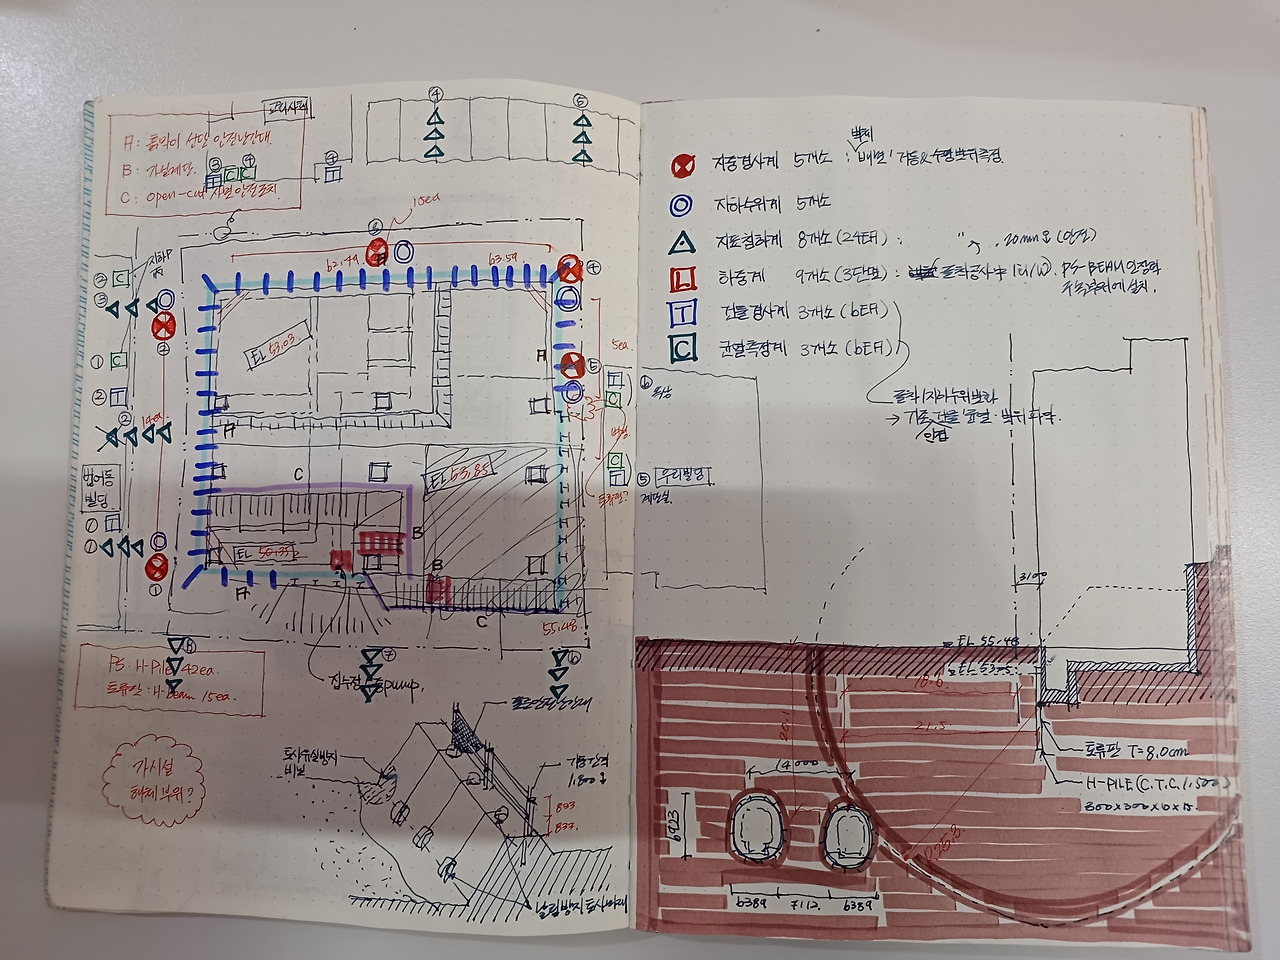 A : 흙막이 상단 안전난간대.
B : 가설계단.
C : open-cut 사면안전조치.
④
⑤
③
④
④
T
C
C
T
15ea
62.49
63.59
④
②
C
③
①
C
②
T
②
14ea
EL 53.03
A
⑤
5ea.
T
C
⑥
옥상
C
T
⑤ 우리빌딩
계단실.
토류판?
A
C
EL 53.85
B
범어동
빌딩
①
T
①
①
EL 50.35
B
A
C
55.48
⑧
⑦
⑥
PS : H-PILE 42ea.
토류판 : H-beam 15ea.
집수정 pump.
가시설
해체 부위?
토사유실방지
비닐
기둥간격
1,800
833
833
날림방지
지중경사계 5개소 : 벽체 '배면' 거동 & 수평변위측정
지하수위계 5개소
지표침하계 8개소 (24EA) . " , 20mm (안전)
L 하중계 9개소 (3단면) : 굴착공사中 PS-BEAM
T 건물경사계 3개소 (6EA)
C 균열측정계 3개소 (6EA)
굴착/지하수위변화
→ 기존 건물 균열·변위 파악.
인접
3100
EL 55.48
EL 53.5
18.6
21.5
20.1
14000
6923
6389
7112
6389
25.8
토류판 T=8.0cm
H-PILE (C.T.C 1,500)
300x300x10x15